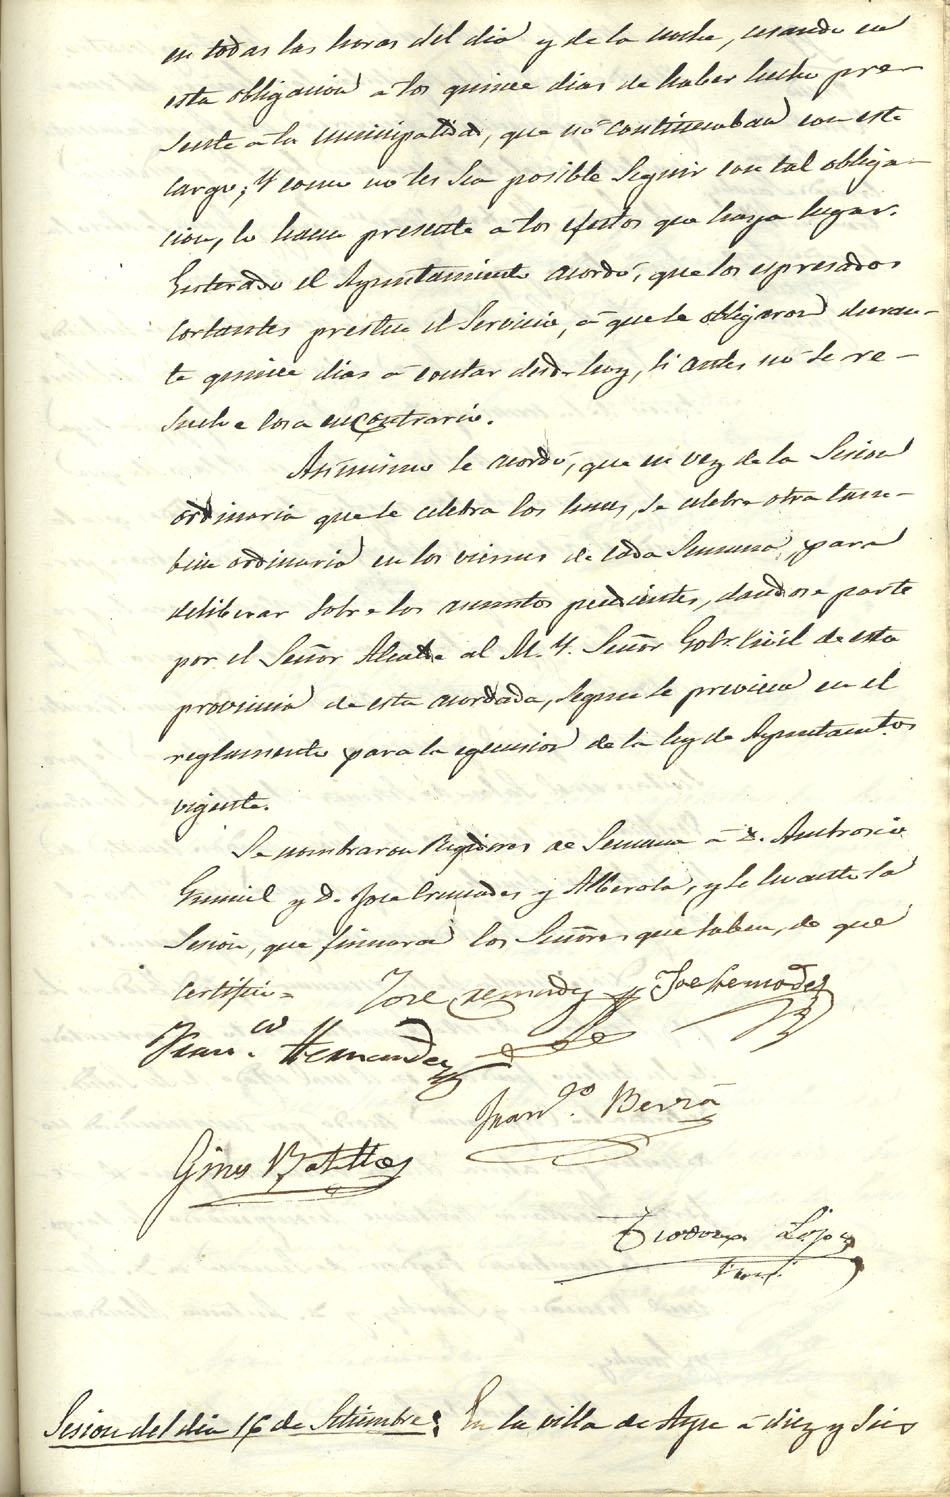 en todas las horas del dia y de la noche, cesando en
esta obligacion a los quince dias de haber hecho pre-
sente a la municipalidad, que no continuaban con este
cargo; y como no les sea posible seguir con tal obliga-
cion, lo hacen presente a los efectos que haya lugar.
Enterado el Ayuntamiento acordó, que los espresados
cortantes presten el servicio, á que se obligaron duran-
te quince dias á contar desde hoy, si antes no se re-
suelve cosa en contrario.
Asimismo se acordó, que en vez de la Sesion
ordinaria que se celebra los lunes, se celebre otra tam-
bien ordinaria en los viernes de cada Semana, para
deliberar sobre los asuntos pendientes, dandose parte
por el Señor Alcalde al M. Y. Señor Gobr. Civil de esta
provincia de esta acordada, segun se previene en el
reglamento para la egecucion de la ley de Ayuntamtos
vigente.
Se nombraron Regidores de Semana á D. Ambrosio
Gumiel y D. Jose Cremades y Alberola, y se levantó la
Sesion, que firmaran los Señores que saben, de que
certifico =
Jose Cremades y Jose Cremades
Franco. Hernandez
Franco. Berna
Gines Botella
Teodoro Lopez
Sesion del dia 16 de Setiembre: En la villa de Aspe á diez y seis